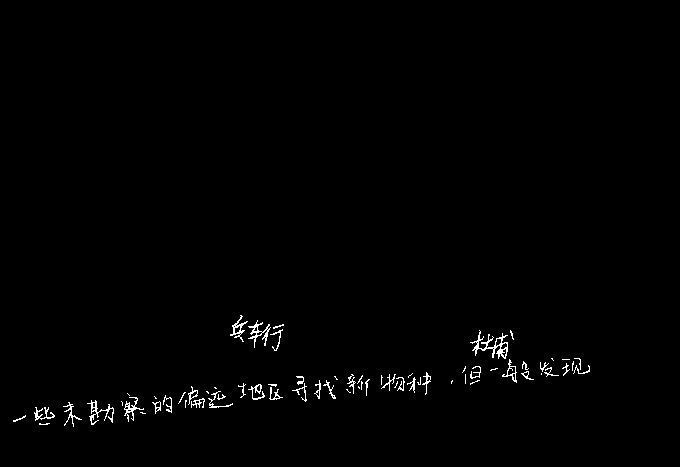 兵车行 杜甫
一些未勘察的偏远地区寻找新物种，但一般发现